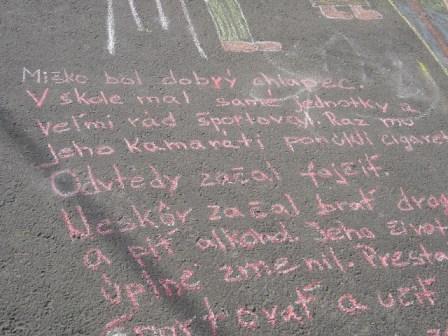 Miško bol dobrý chlapec.
V škole mal samé jednotky a
veľmi rád športoval. Raz mu
jeho kamaráti ponúkli cigaret
Odvtedy začal fajčiť.
Neskôr začal brať drog
a piť alkohol. Jeho život
úplne zmenil. Presta
športovať a učiť